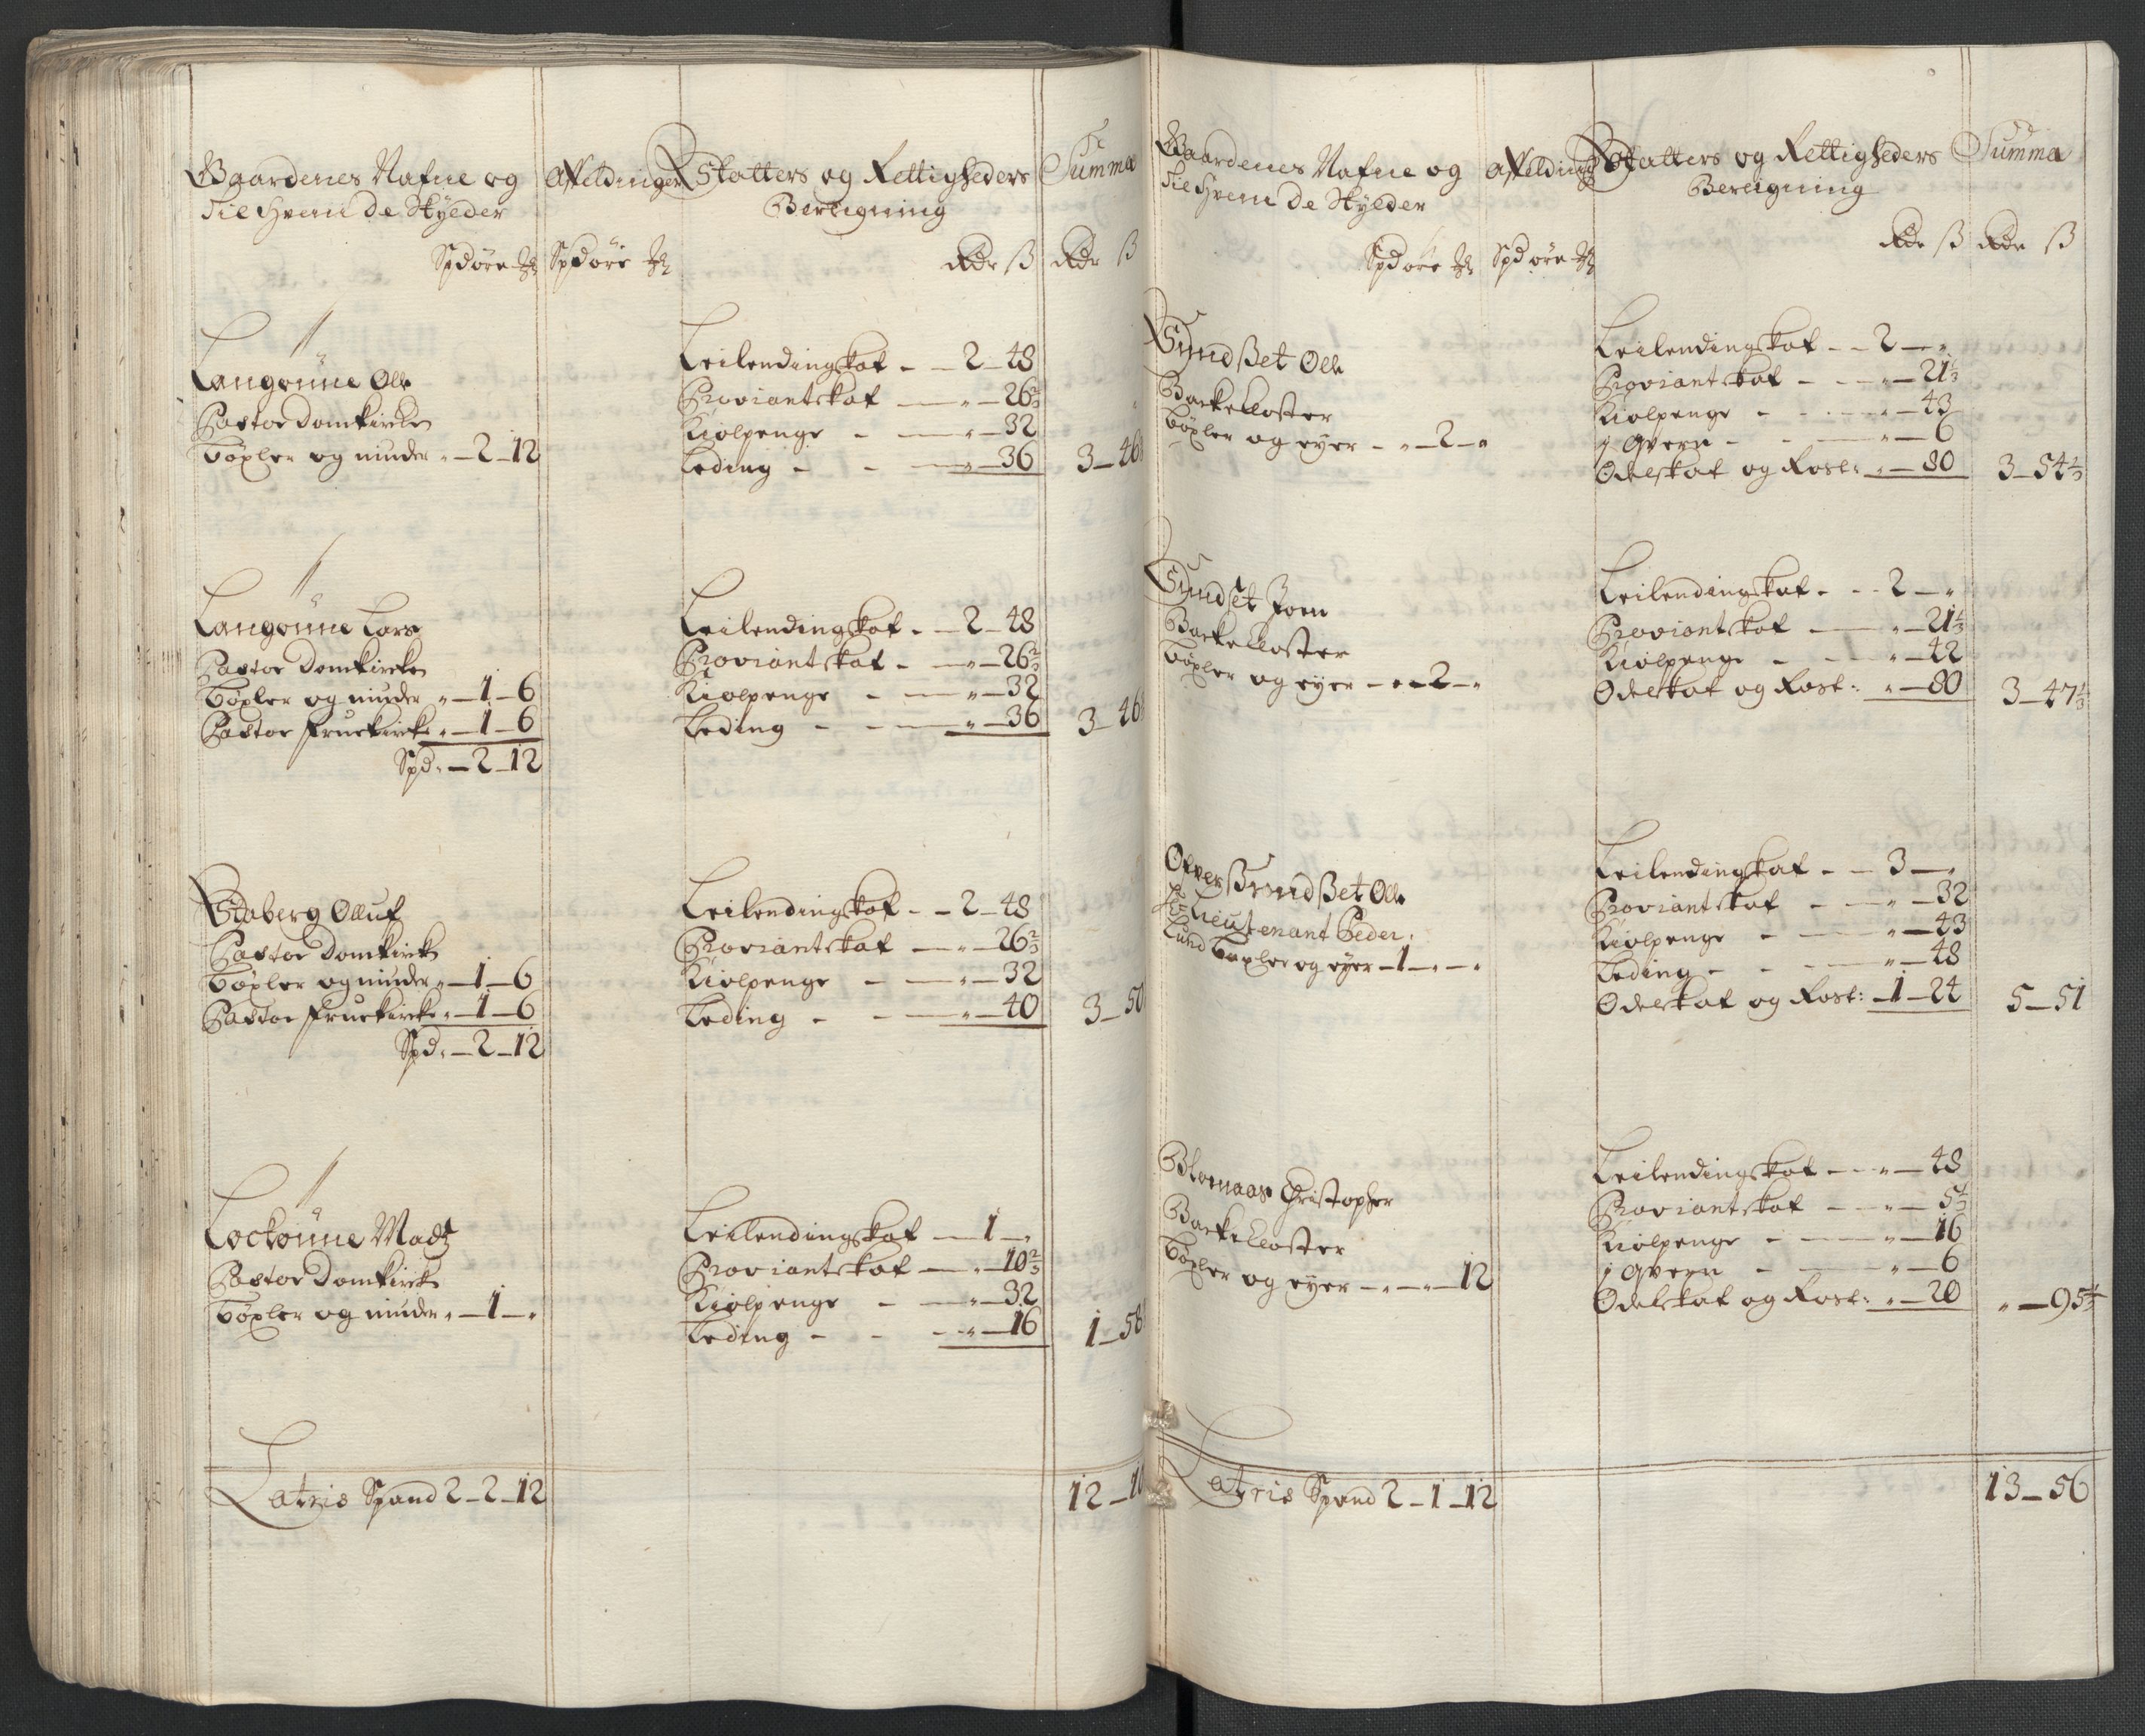 Gaardenes Nafne og
Til Hvem De Skylder
Affeldinger
Skatters og Rettigheders
Beregning
Summa
Spd øre
Spd øre
Rdr ß
Rdr ß
Langønne Olle
Pastor Domkircke
Bøxler og minder " — 2 — 12
Leilendingskat - — 2 — 48
Proviantskat — " — 26 2/3
Kiølpenge - — " — 32
Leding - - — " — 36
3 — 46
Langønne Lars
Pastor Domkircke
Bøxler og minder " — 1 — 6
Pastor Fruekircke " — 1 — 6
Spd: — 2 — 12
Leilendingskat - — 2 — 48
Proviantskat - — " — 26 2/3
Kiølpenge - — " — 32
Leding - - — " — 36
3 — 46
Staberg Olluf
Pastor Domkircke
Bøxler og minder " — 1 — 6
Pastor Fruekircke " — 1 — 6
Spd: — 2 — 12
Leilendingskat - - 2 — 48
Proviantskat — " — 26 2/3
Kiølpenge - — " — 32
Leding - - — " — 40
3 — 50
Lockønne Madtz
Pastor Domkircke
Bøxler og minder " — 1 — "
Leilendingskat — 1 — "
Proviantskat — " — 10 2/3
Kiølpenge - — " — 32
Leding - - - " — 16
1 — 58
Latris Spand 2 — 2 — 12
12 — 10
Gaardenes Nafne og
Til Hvem De Skylder
Affelding
Skatters og Rettigheders
Beregning
Summa
Spd øre
Spd øre
Rdr ß
Rdr ß
Sundßet Olle
Backe Closter
Bøxler og eyer - " — 2 — "
Leilendingskat - - 2 — "
Proviantskat - — " — 21 1/3
Kiølpenge - - — " — 43
j Qvern - - — " — 6
Odelskat og Rost: " — 80
3 — 54 1/3
Sundset Joen
Backe Closter
Bøxler og eyer - " — 2 — "
Leilendingskat - - - 2 — "
Proviantskat — " — 21 1/3
Kiølpenge - - — " — 42
Odelskat og Rost: " — 80
3 — 47 1/3
Ofver Sundßet Olle
Hr Lieutenant Peder
Lund Bøxler og eyer — 1 — " — "
Leilendingskat - - 3 — "
Proviantskat - — " — 32
Kiølpenge - — " — 43
Leding - - — " — 48
Odelskat og Rost: — 1 — 24
5 — 51
Blomaas Christopher
Backe Closter
Bøxler og eyer — " — " — 12
Leilendingskat - - " — 48
Proviantskat - — " — 5 1/3
Kiølpenge - — " — 16
j Qvern - — " — 6
Odelskat og Rost: " — 20
" — 95 1/3
Latris Spand 2 — 1 — 12
13 — 56